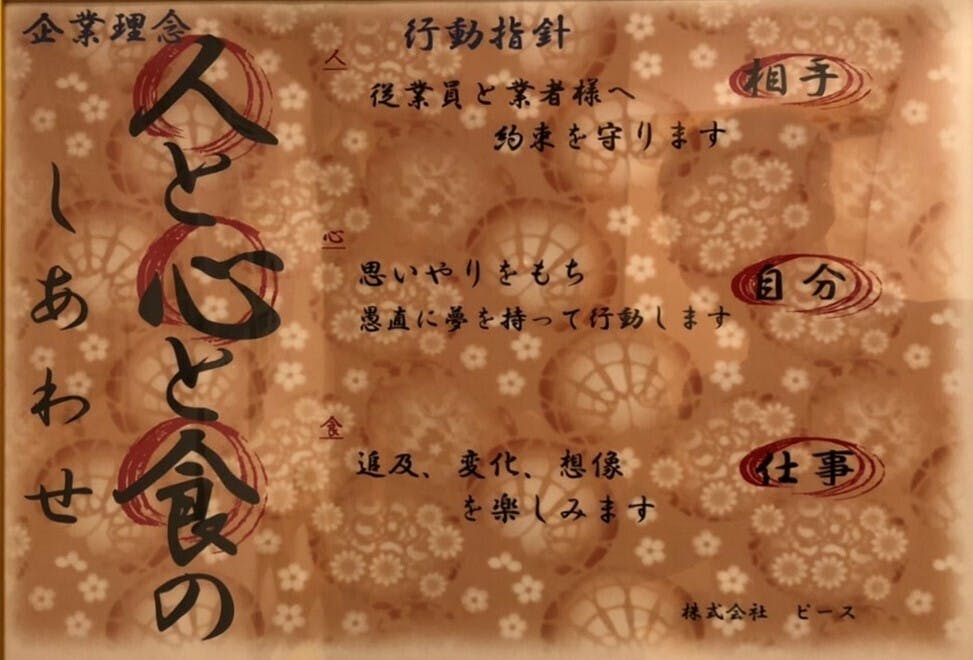 企業理念
人と心と食の
しあわせ
行動指針
人
従業員と業者様へ
約束を守ります
相手
心
思いやりをもち
愚直に夢を持って行動します
自分
食
追及、変化、想像
を楽しみます
仕事
株式会社 ピース